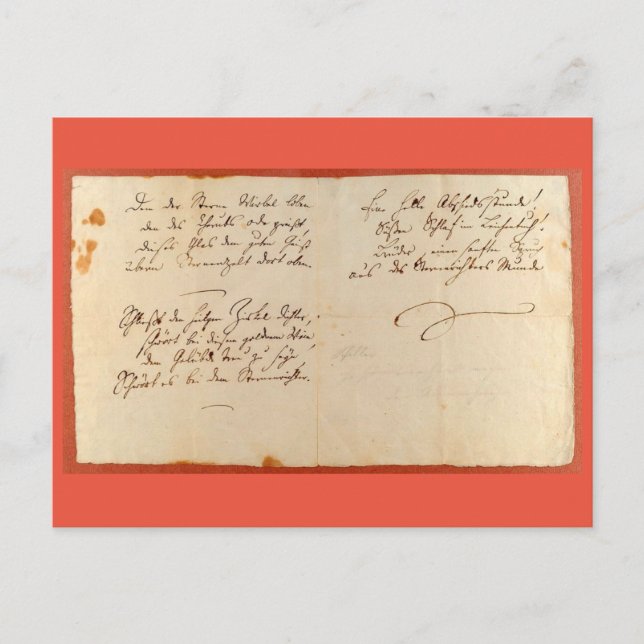 Den der Sterne Wirbel loben
den des Seraphs Hymne preißt,
dieses Glas dem guten Geist
überm Sternenzelt dort oben.
Schließt den heilgen Zirkel dichter,
schwört bei diesem goldnen Wein,
dem Gelübde treu zu seyn,
Schwört es bei dem Sternenrichter.
Eine helle Abschiedsstunde!
Süßen Schlaf im Leichentuch!
Brüder einen sanften Spruch
aus des Sternrichters Munde
Schiller